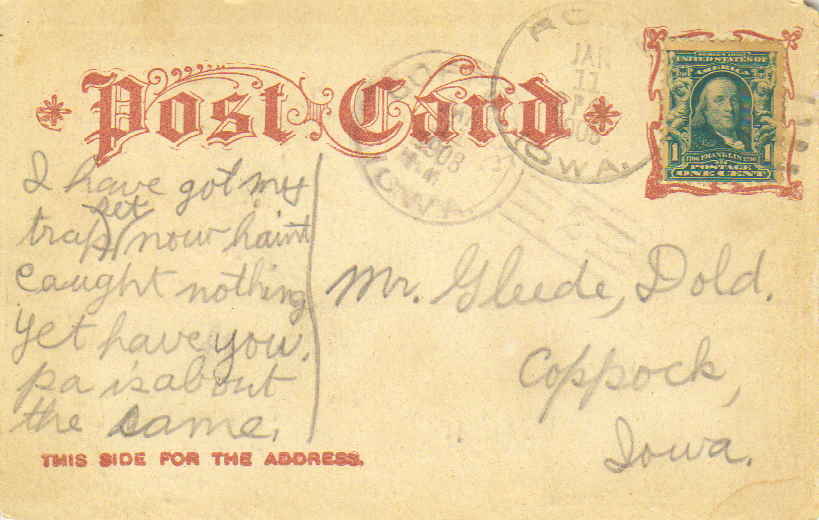 Post Card
JAN
11
1908
IOWA.
1908
IOWA.
UNITED STATES OF
AMERICA
1 1
1706 FRANKLIN 1790
POSTAGE
ONE CENT
I have got my
set
trap now haint
caught nothing
yet have you.
pa is about
the same.
Mr. Gleede, Dold.
Coppock,
Iowa.
THIS SIDE FOR THE ADDRESS.